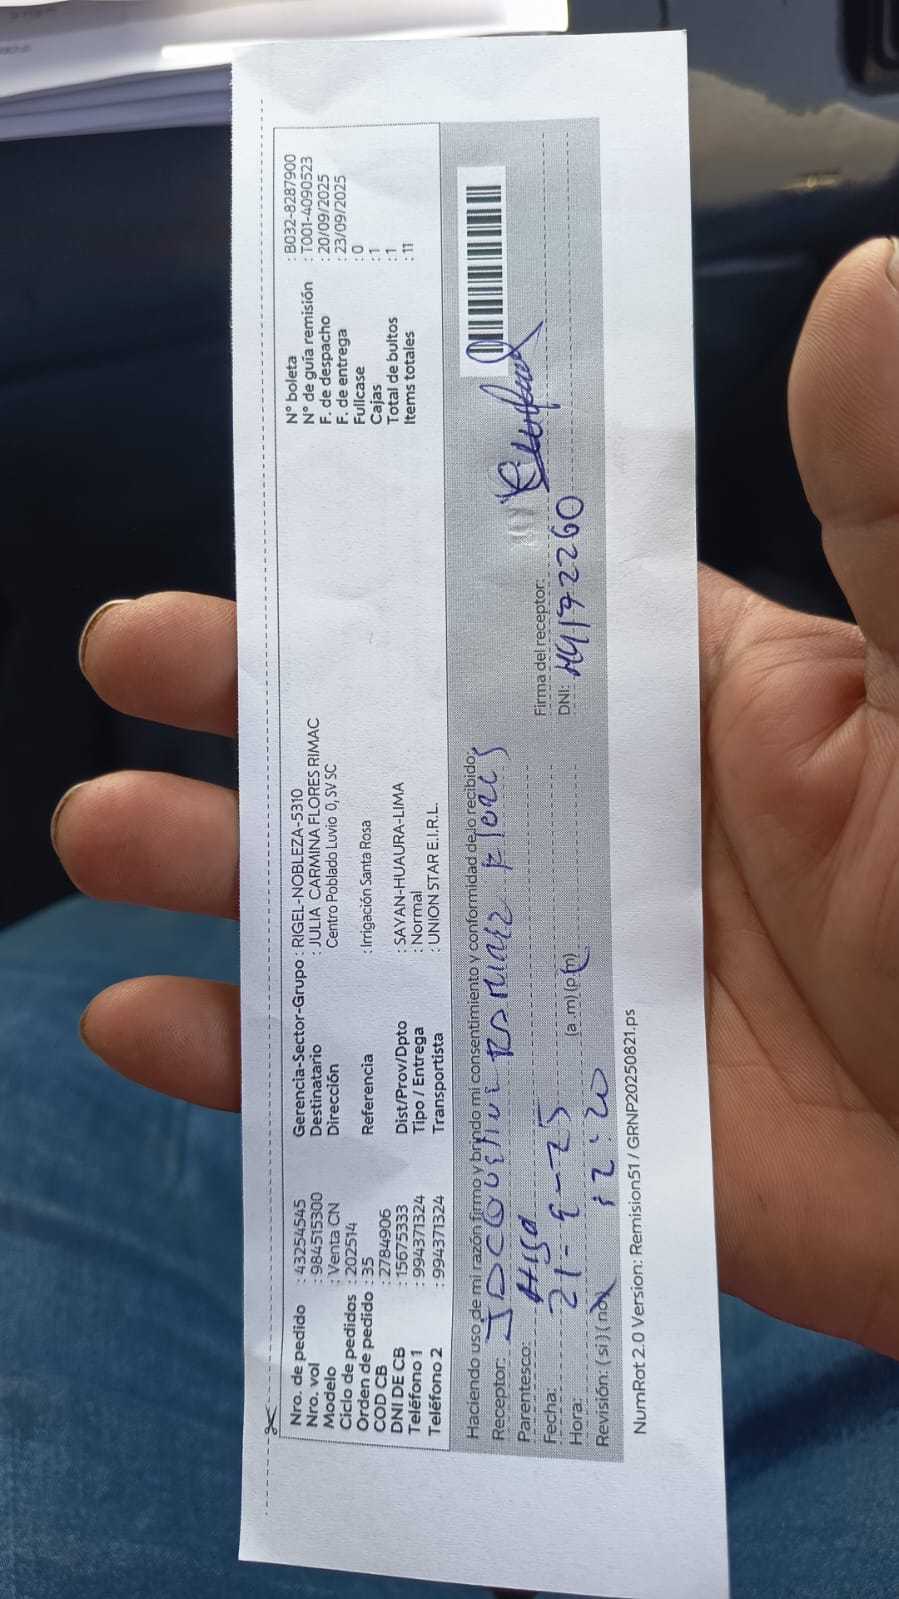 Nro. de pedido : 43254545
Nro. vol : 984515300
Modelo : Venta CN
Ciclo de pedidos : 202514
Orden de pedido : 35
COD CB : 2784906
DNI DE CB : 15675333
Teléfono 1 : 994371324
Teléfono 2 : 994371324
Gerencia-Sector-Grupo : RIGEL-NOBLEZA-5310
Destinatario : JULIA CARMINA FLORES RIMAC
Dirección Centro Poblado Luvio 0, SV SC
Referencia : Irrigación Santa Rosa
Dist/Prov/Dpto : SAYAN-HUAURA-LIMA
Tipo / Entrega : Normal
Transportista : UNION STAR E.I.R.L.
N° boleta : B032-8287900
N° de guía remisión : T001-4090523
F. de despacho : 20/09/2025
F. de entrega : 23/09/2025
Fullcase : 0
Cajas : 1
Total de bultos : 1
Items totales : 11
Haciendo uso de mi razón firmo y brindo mi consentimiento y conformidad de lo recibido:
Receptor: RAMIREZ FLORES
Parentesco: HIJA
Fecha: 21-9-25
Hora: 12:20 (a.m) (p.m)
Revisión: (si) (no)
Firma del receptor:
DNI:
NumRot 2.0 Version: Remision51 / GRNP20250821.ps